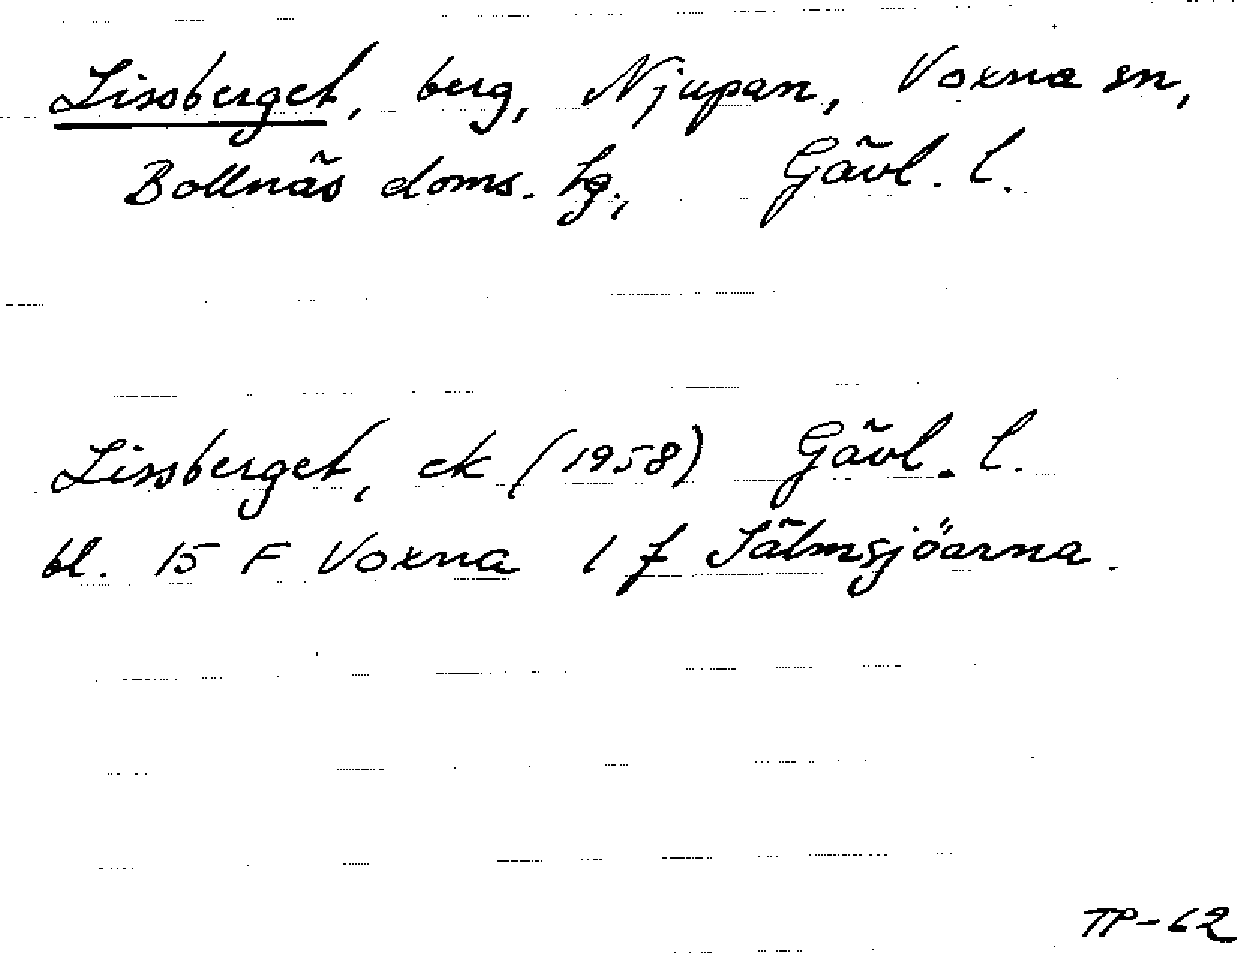 Lissberget, berg, Njupan, Voxna sn,
Bollnäs doms. hg., Gävl. l.
Lissberget, ek (1958) Gävl. l.
bl. 15 F Voxna 1 f Sälmsjöarna.
TP-62